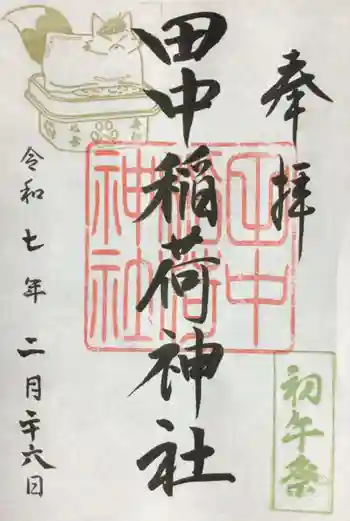 奉拝
田中稲荷神社
田中稲荷神社
初午祭
令和七年二月二十六日